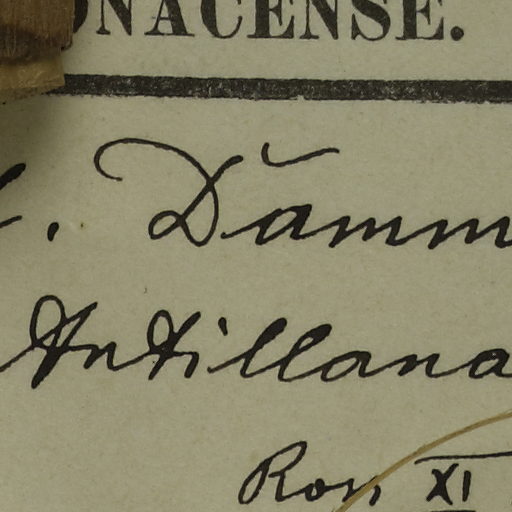 ONACENSE.
. Dämm
Antillana
Ros XI